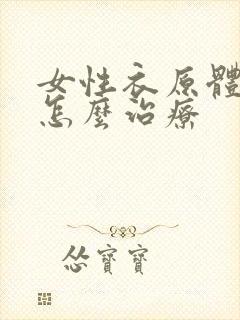 女性衣原體
怎麼治療
怂寶寶